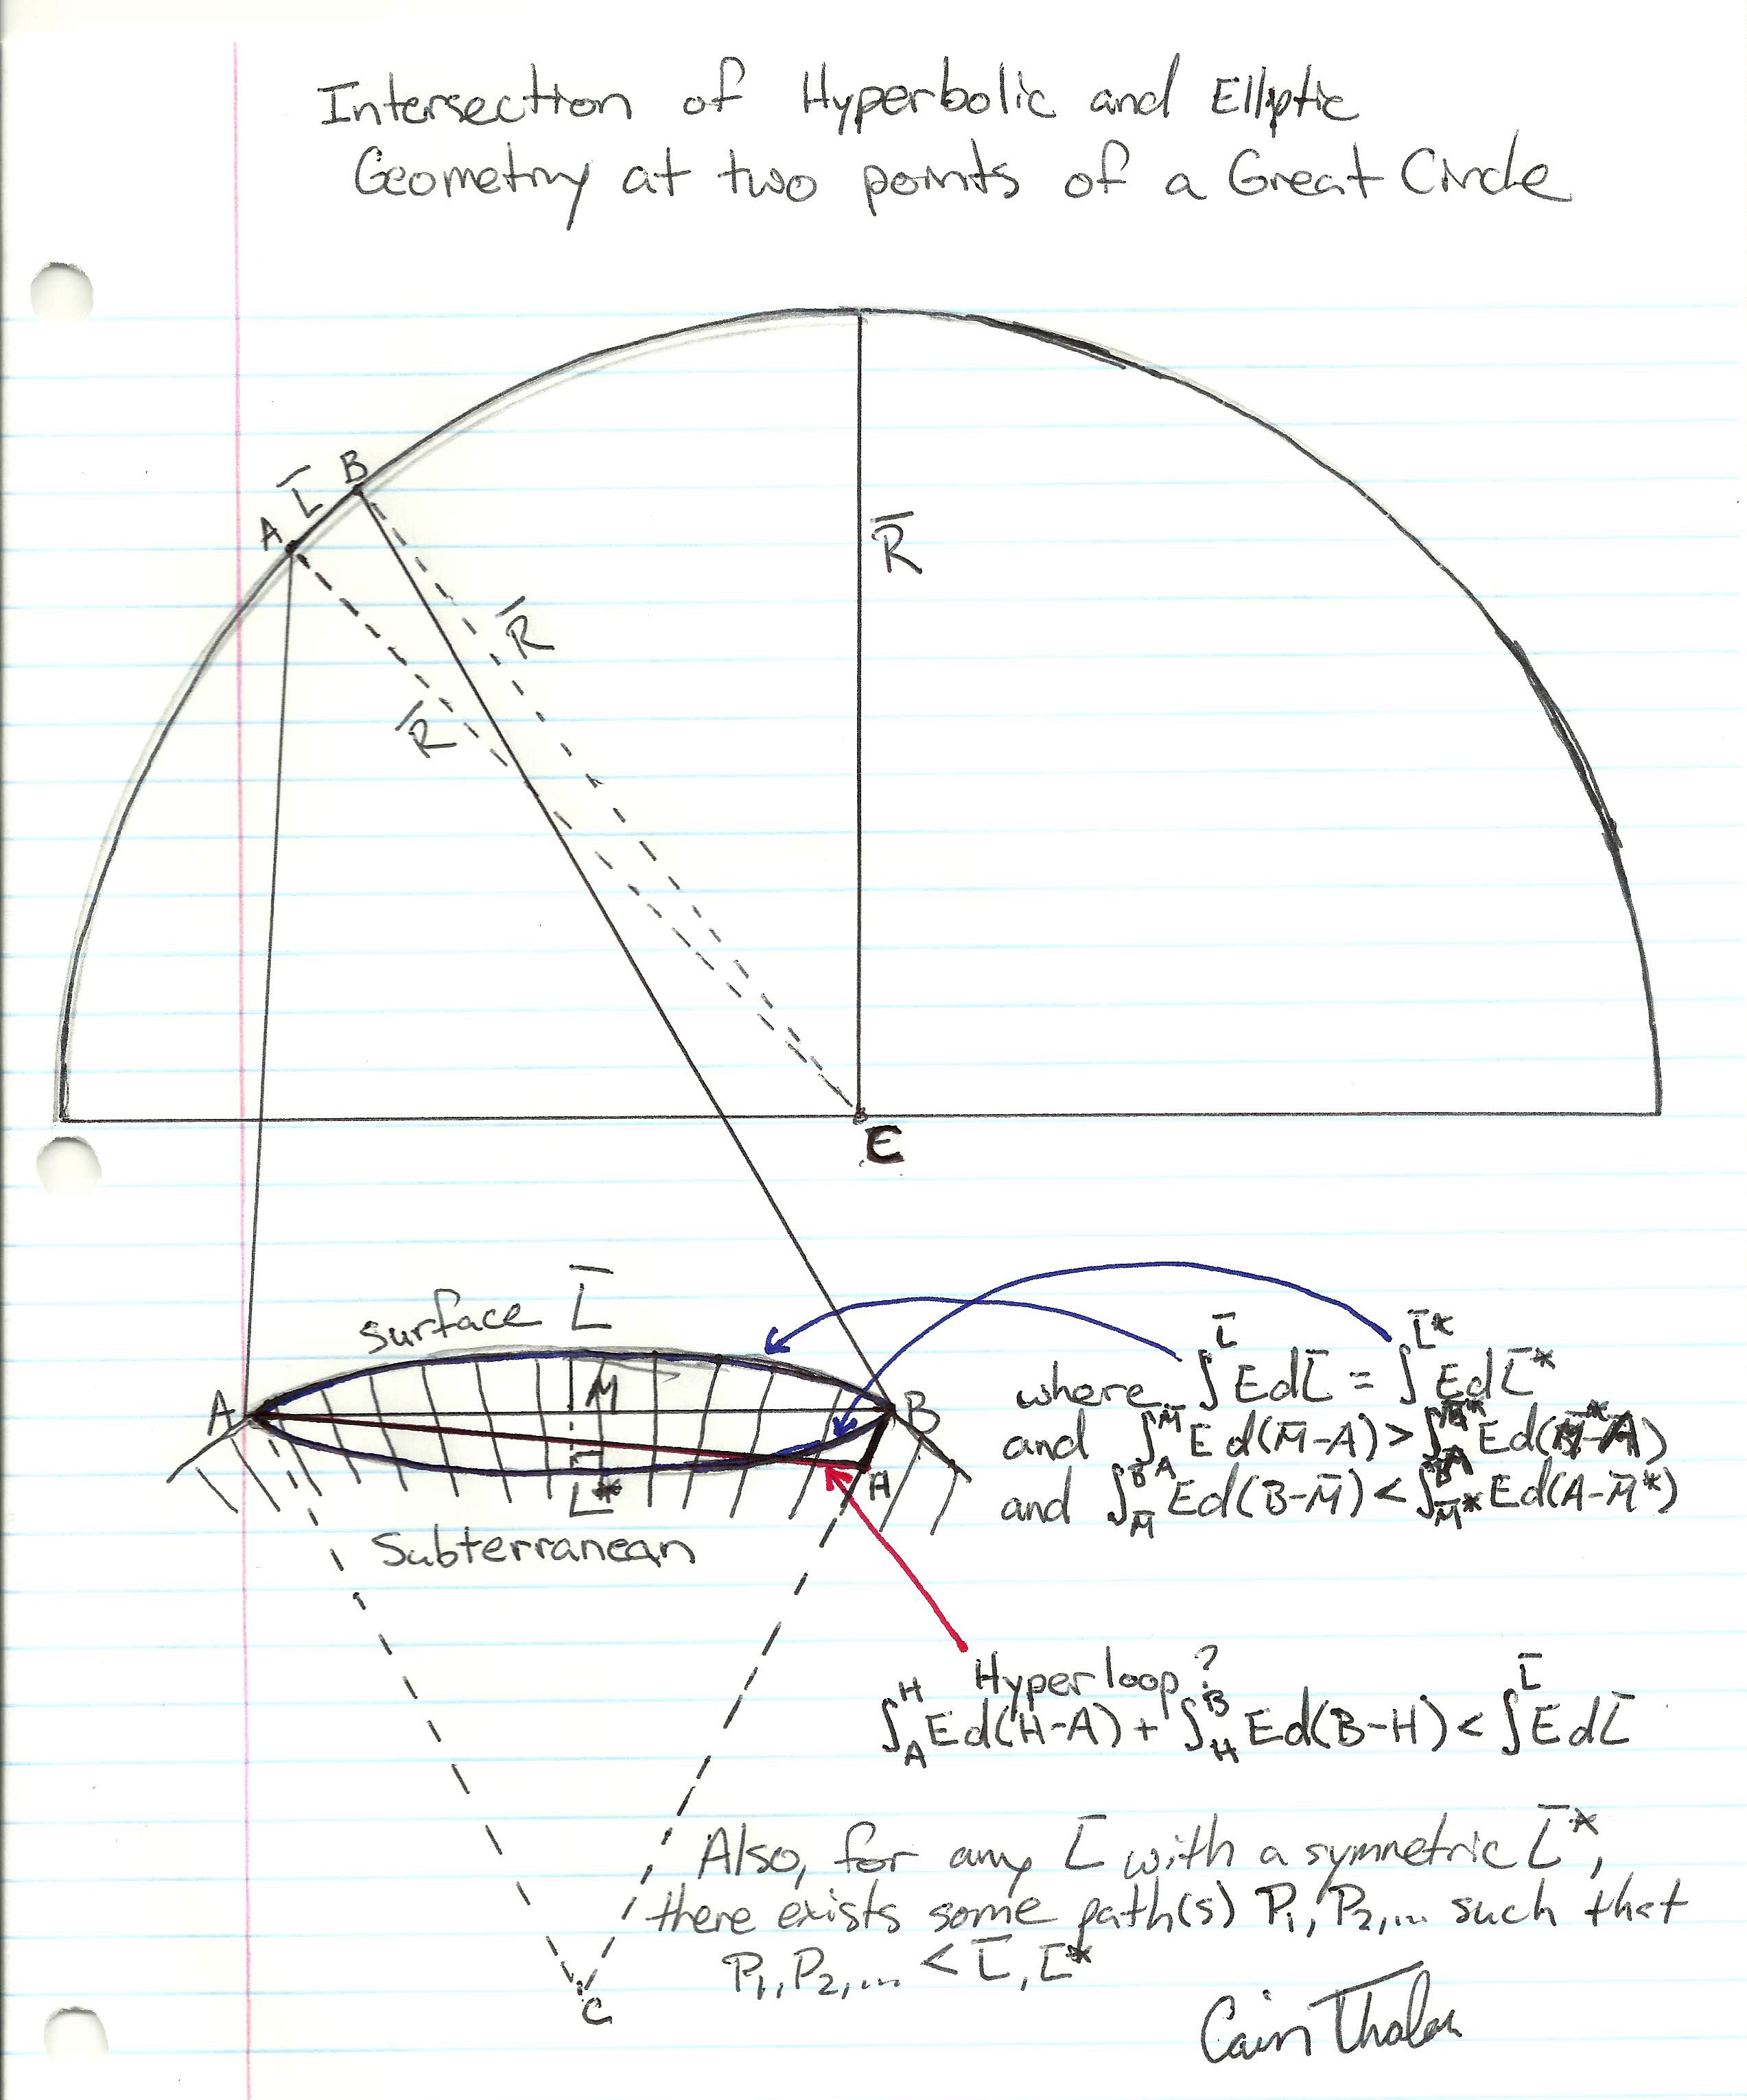 Intersection of Hyperbolic and Ellptic
Geometry at two points of a Great Circle
B
L̅
A
R̅
R̅
R̅
E
surface L̅
A
M
B
H
L̅*
Subterranean
where ∫^L̅ EdL̅ = ∫^L̅* EdL̅*
and ∫_A^M̅ E d(M̅-A) > Ed(M̅*-A)
and ∫_M̅^B Ed(B-M̅) < Ed(A-M̅*)
Hyperloop?
∫_A^H Ed(H-A) + ∫_H^B Ed(B-H) < ∫^L̅ EdL̅
Also, for any L̅ with a symmetric L̅*,
there exists some path(s) P₁, P₂,... such that
P₁, P₂,... < L̅, L̅*
C
Cain